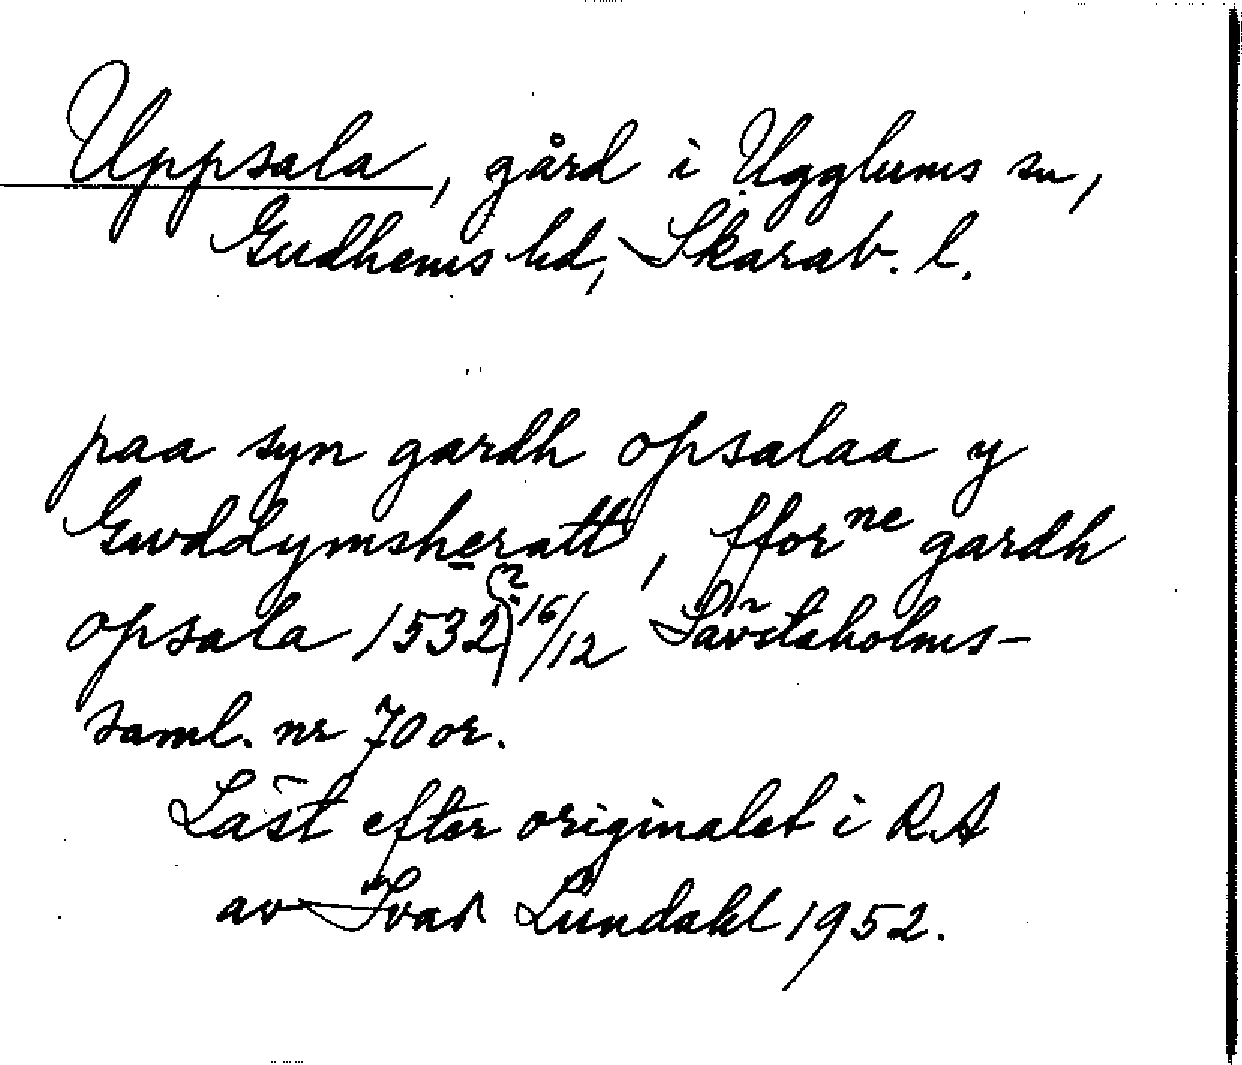 Uppsala, gård i Ugglums sn,
Gudhems hd, Skarab. l.
paa syn gardh opsalaa y
Gwddymsheratt, fforne gardh
opsala 1532 16/12 Sävstaholms-
saml. nr 70 or.
Läst efter originalet i RA
av Ivar Lundahl 1952.